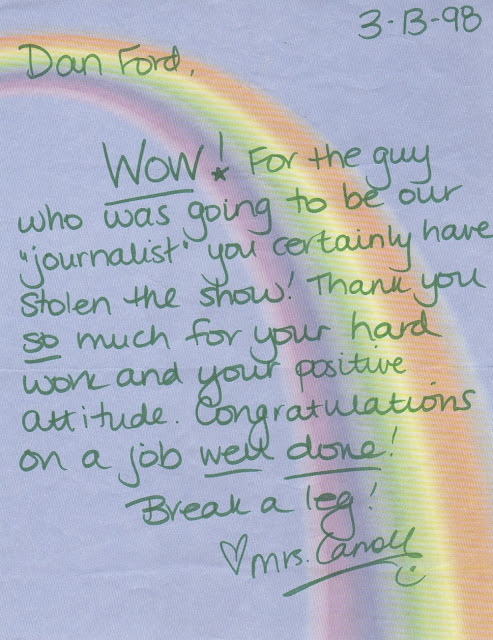 3-13-98
Dan Ford,
WOW! For the guy
who was going to be our
"journalist" you certainly have
stolen the show! Thank you
so much for your hard
work and your positive
attitude. Congratulations
on a job well done!
Break a leg!
♡ Mrs. Carroll